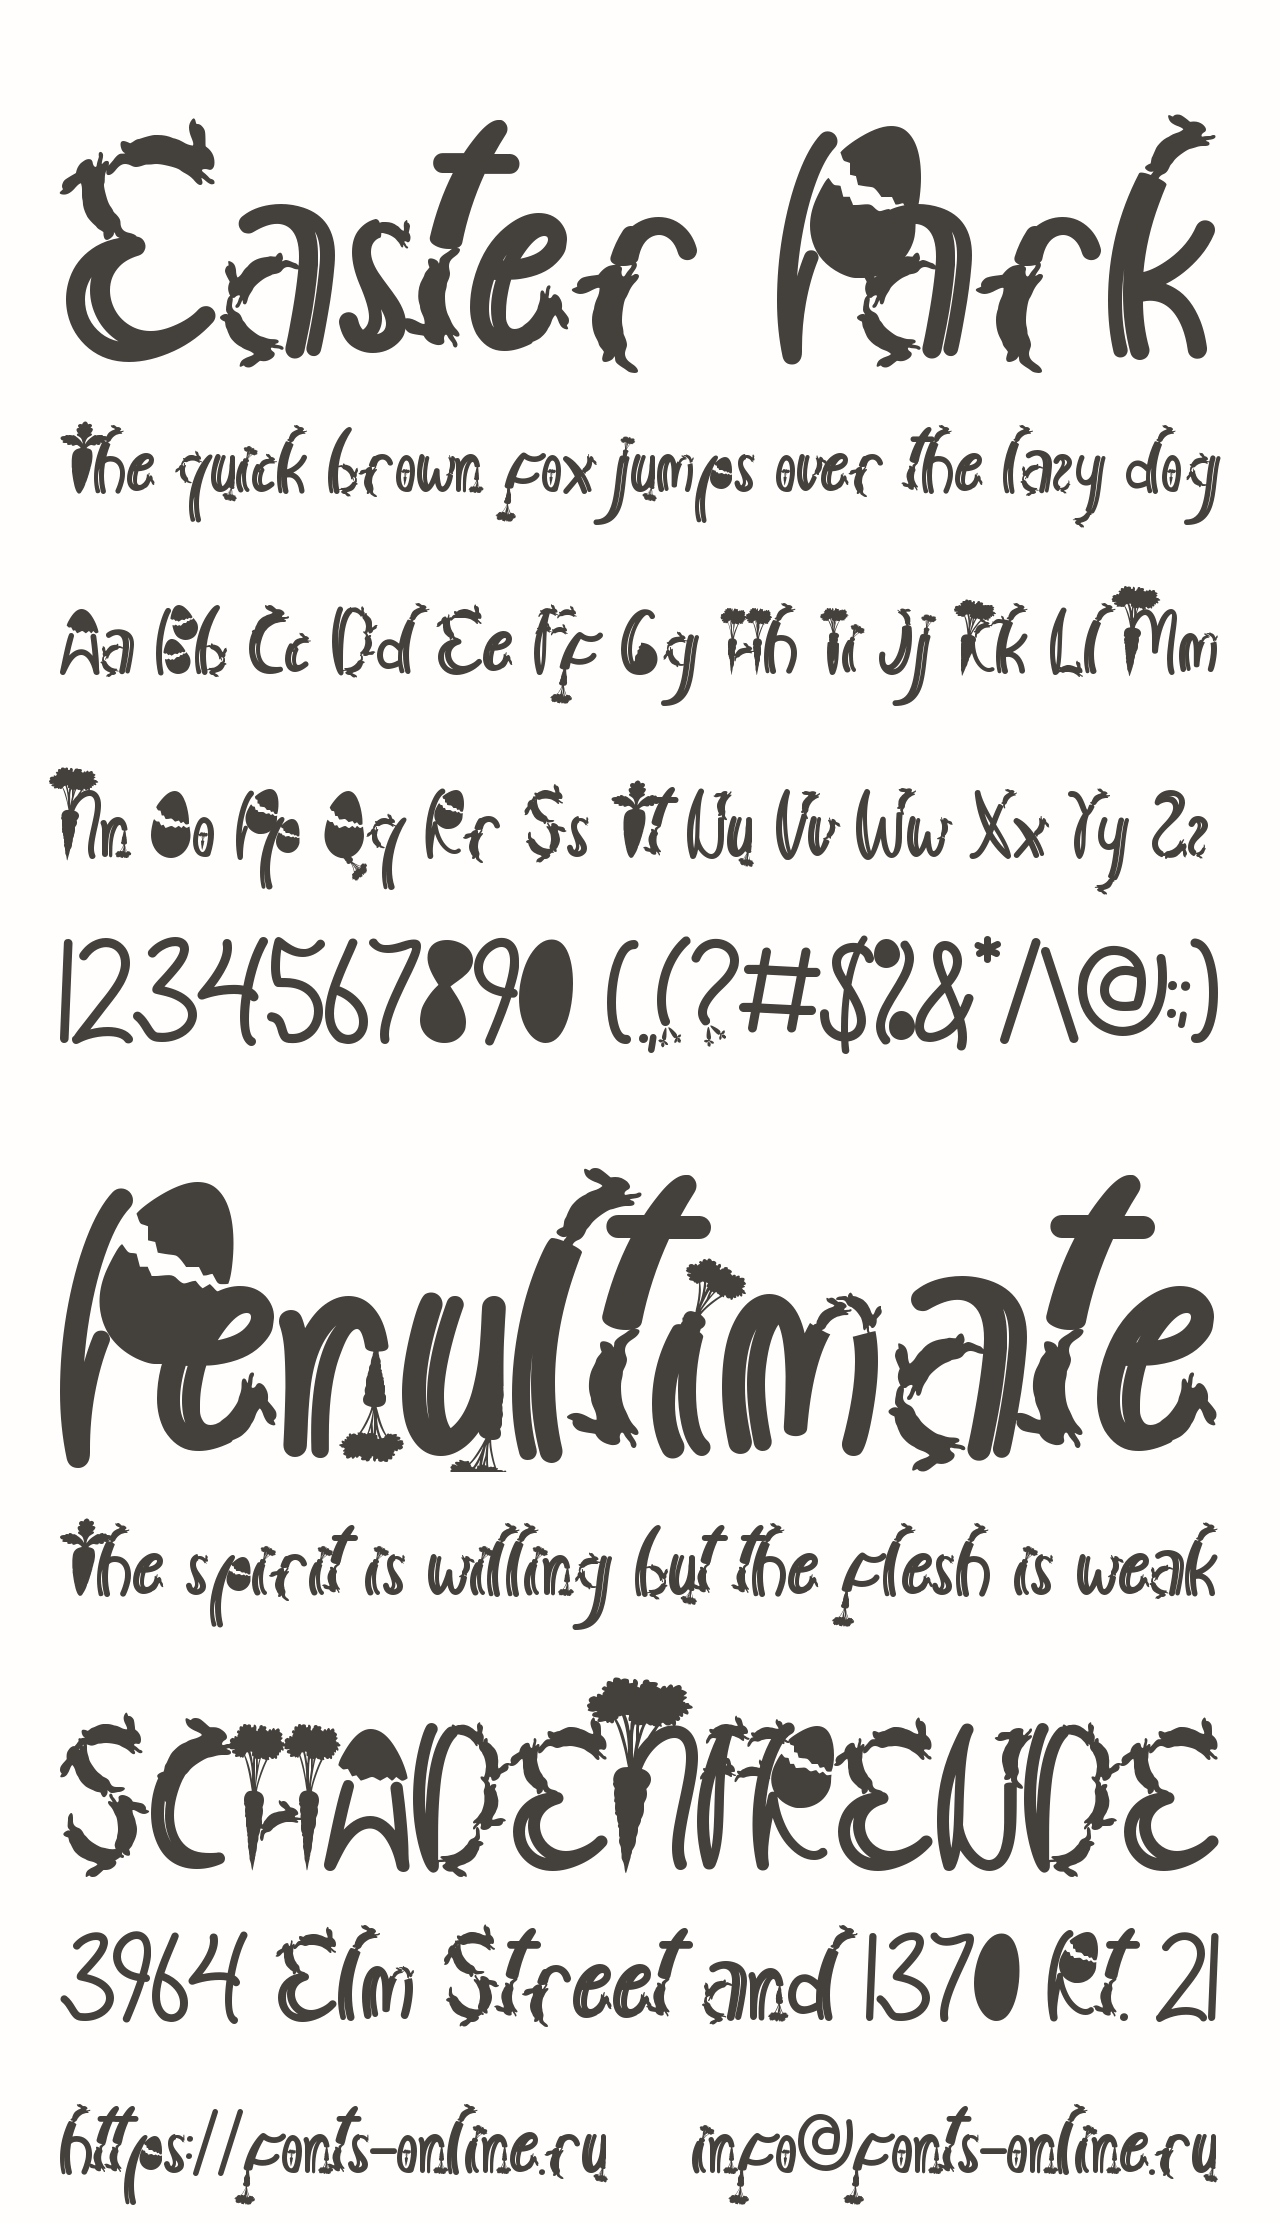 Easter Park
The quick brown fox jumps over the lazy dog
Aa Bb Cc Dd Ee Ff Gg Hh Ii Jj Kk Ll Mm
Nn Oo Pp Qq Rr Ss Tt Uu Vv Ww Xx Yy Zz
1234567890 (.,(?#$%&*/\@:;)
Penultimate
The spirit is willing but the flesh is weak
SCHADENFREUDE
3964 Elm Street and 1370 Rt. 21
https://fonts-online.ru info@fonts-online.ru